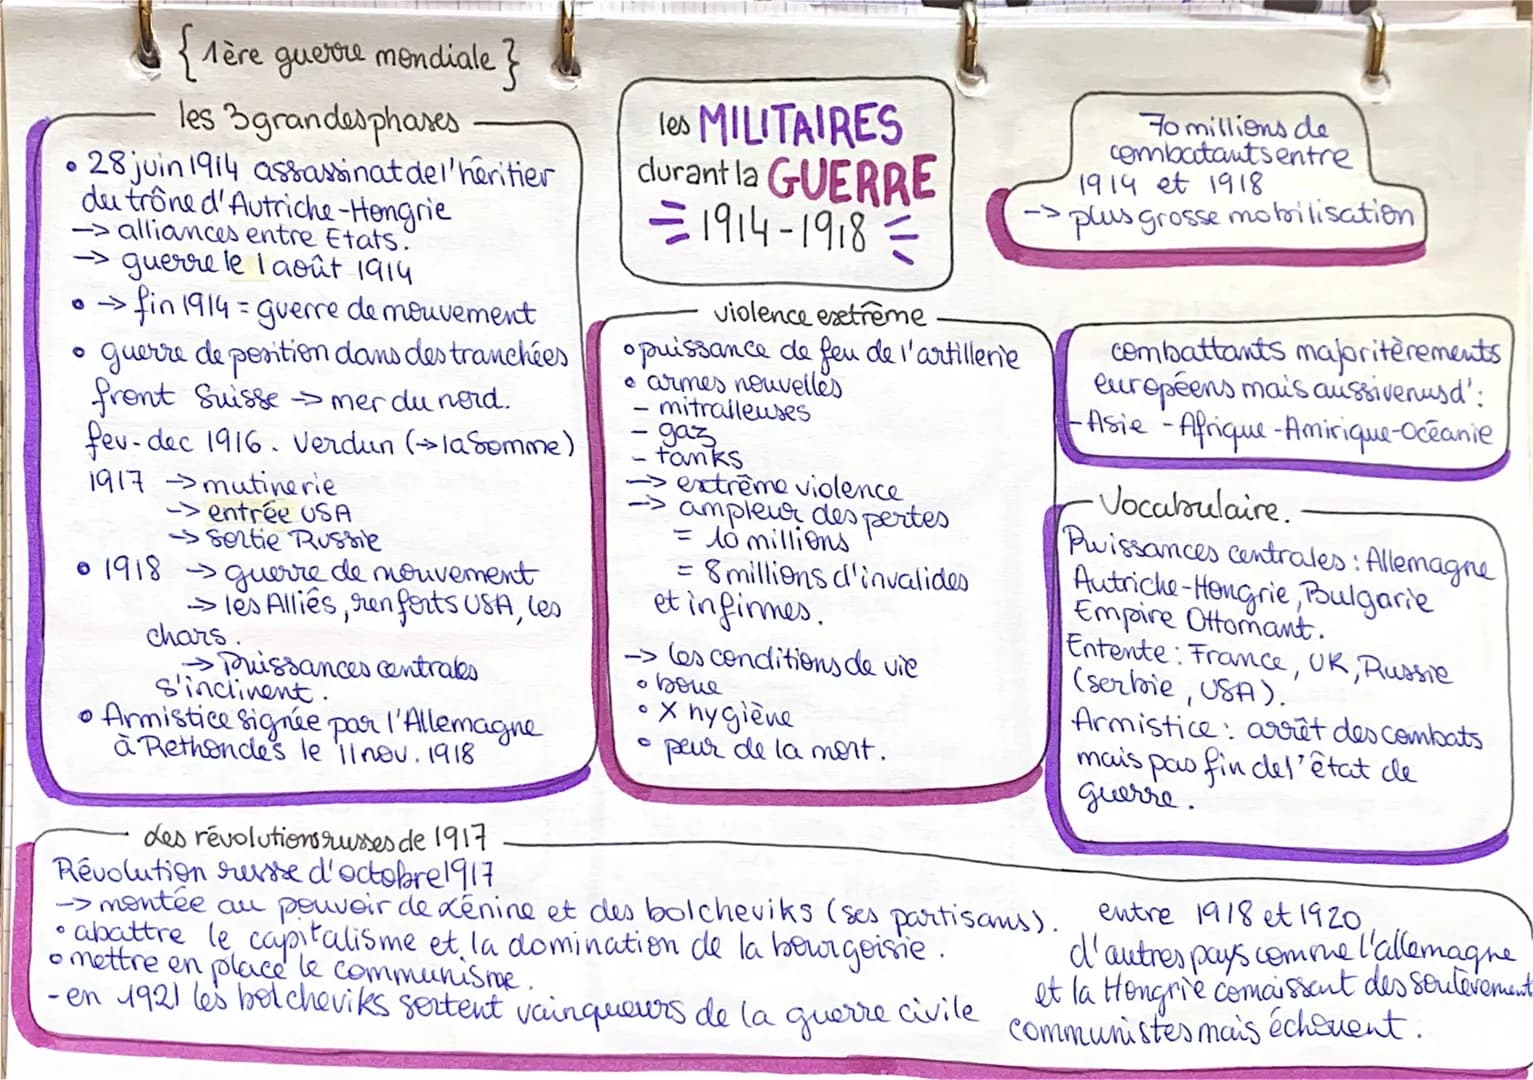 { 1ère guerre mondiale }
les 3 grandes phases
• 28 juin 1914 assassinat de l'héritier
du trône d'Autriche-Hongrie
-> alliances entre Etats.
-> guerre le 1 août 1914
• -> fin 1914 = guerre de mouvement
• guerre de position dans des tranchées
front Suisse -> mer du nord.
fev-dec 1916. Verdun (-> la Somme)
1917 -> mutinerie
-> entrée USA
-> Sortie Russie
• 1918 -> guerre de mouvement
-> les Alliés, renforts USA, les
chars.
-> Puissances centrales
s'inclinent.
• Armistice signée par l'Allemagne
à Rethondes le 11 nov. 1918
les MILITAIRES
durant la GUERRE
1914-1918
70 millions de
combatants entre
1914 et 1918
-> plus grosse mobilisation
violence extrême
• puissance de feu de l'artillerie
• armes nouvelles
- mitralleuses
- gaz
- tanks
-> extrême violence
-> ampleur des pertes
= 10 millions
= 8 millions d'invalides
et infirmes.
-> les conditions de vie
• boue
• X hygiène
• peur de la mort.
combattants majoritèrements
européens mais aussi venus d':
- Asie - Afrique - Amirique - Océanie
Vocabulaire.
Puissances centrales : Allemagne
Autriche-Hongrie, Bulgarie
Empire Ottomant.
Entente : France, UK, Russie
(serbie, USA).
Armistice : arrêt des combats
mais pas fin de l'état de
guerre.
Les révolutions russes de 1917
Révolution russe d'octobre 1917
-> montée au pouvoir de Lénine et des bolcheviks (ses partisans).
• abattre le capitalisme et la domination de la bourgeoisie.
• mettre en place le communisme.
- en 1921 les bolcheviks sortent vainqueurs de la guerre civile
entre 1918 et 1920
d'autres pays comme l'allemagne
et la Hongrie connaissent des soulèvement
communistes mais échouent.